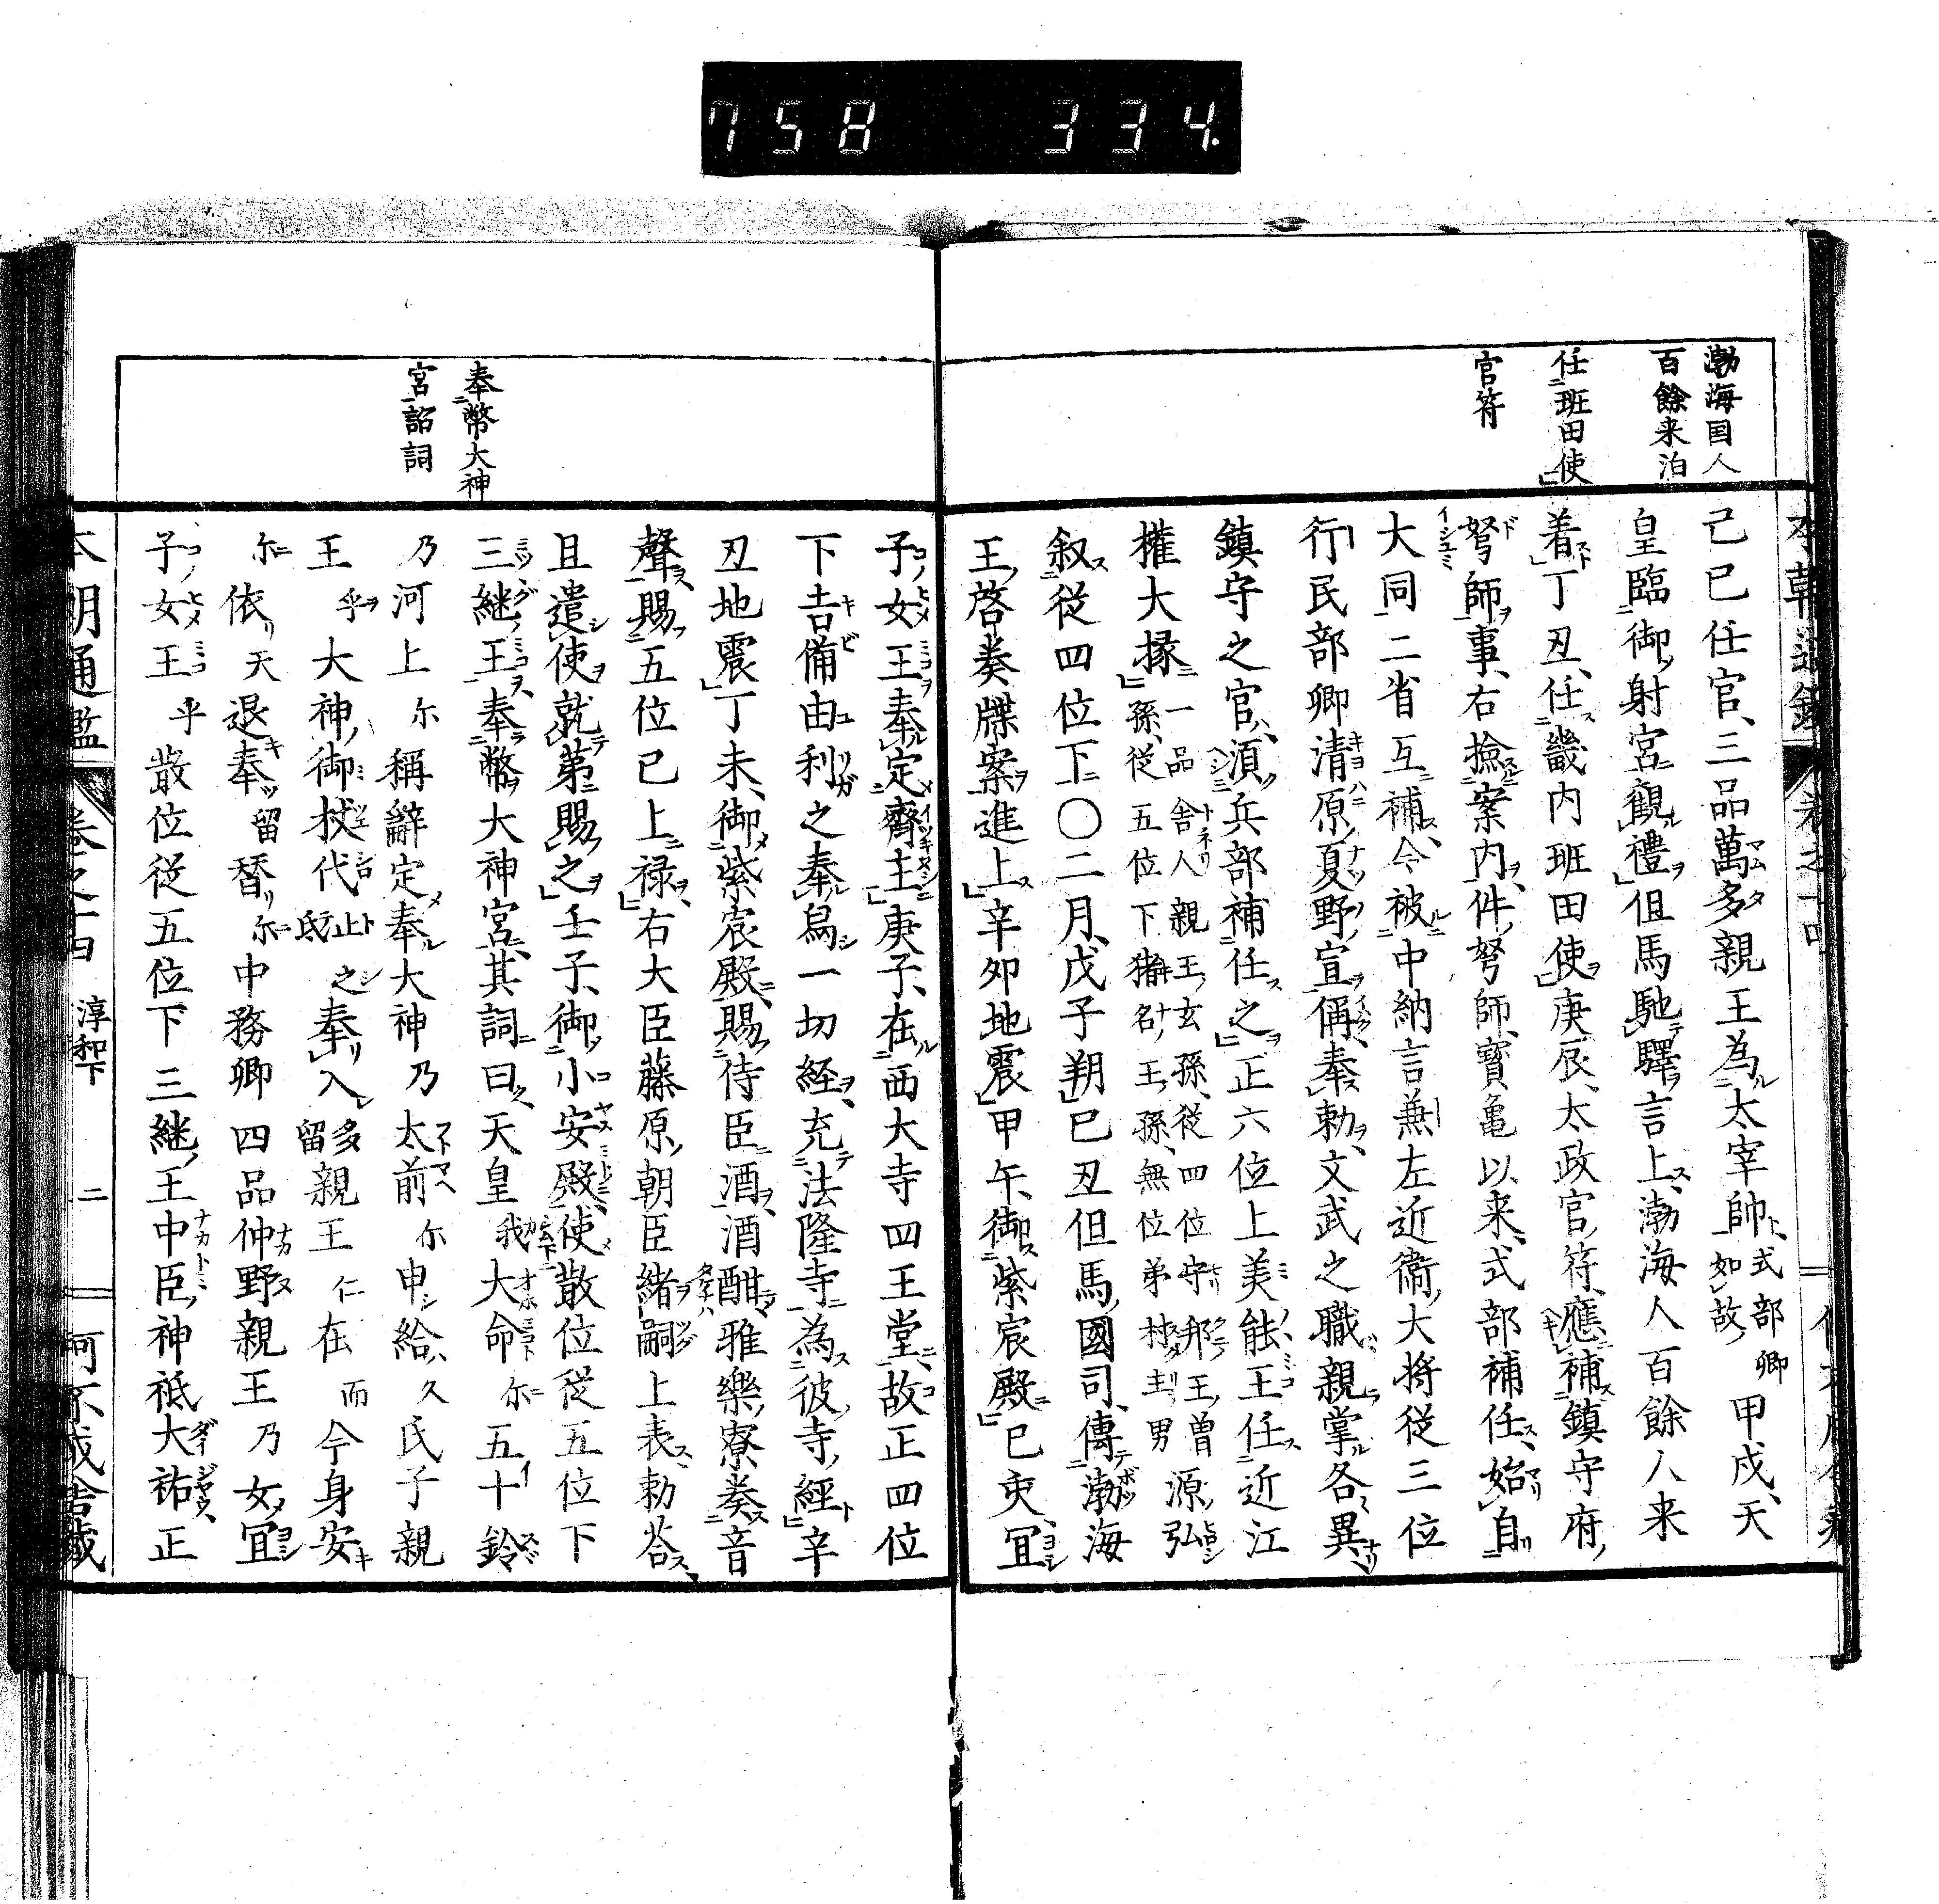 758 334.
渤海国人
百餘来泊
任班田使
官符
己巳任官、三品萬多親王為太宰帥、式部卿如故、甲戌、天
皇臨御射宮觀禮但馬馳驛言上、渤海人百餘人来
着丁丑、任畿内班田使庚辰、太政官符、應補鎮守府
弩師事、右撿案内件弩師、寶亀以来、式部補任、始自
大同二省互補、今被中納言兼左近衞大将従三位
行民部卿清原夏野宣偁、奉勅、文武之職、親掌各異、
鎮守之官、須兵部補任之正六位上美能王任近江
權大掾一品舎人親王玄孫、従四位守部王曽
孫、従五位下猪名王孫、無位弟村主男源弘
叙従四位下〇二月、戊子朔己丑但馬國司、傳渤海
王啓奏牒案進上辛卯地震甲午、御紫宸殿己亥、冝
奉幣大神
宮詔詞
子女王奉定齋主庚子、在西大寺四王堂、故正四位
下吉備由利之奉爲一切経、充法隆寺為彼寺経辛
丑地震丁未、御紫宸殿、賜侍臣酒、酒酣雅樂寮奏音
聲、賜五位已上禄、右大臣藤原朝臣緒嗣上表、勅荅、
且遣使就第賜之壬子、御小安殿、使散位従五位下
三継王奉幣大神宮、其詞曰、天皇我大命尓五十鈴
乃河上尓稱辭定奉大神乃太前尓申給久氏子親
王乎大神御杖代止之氐奉入多留親王仁在而今身安
尓依天退奉留替尓中務卿四品仲野親王乃女冝
子女王乎散位従五位下三継王中臣神祇大祐正
本朝通鑑 卷之十四 淳和下 二